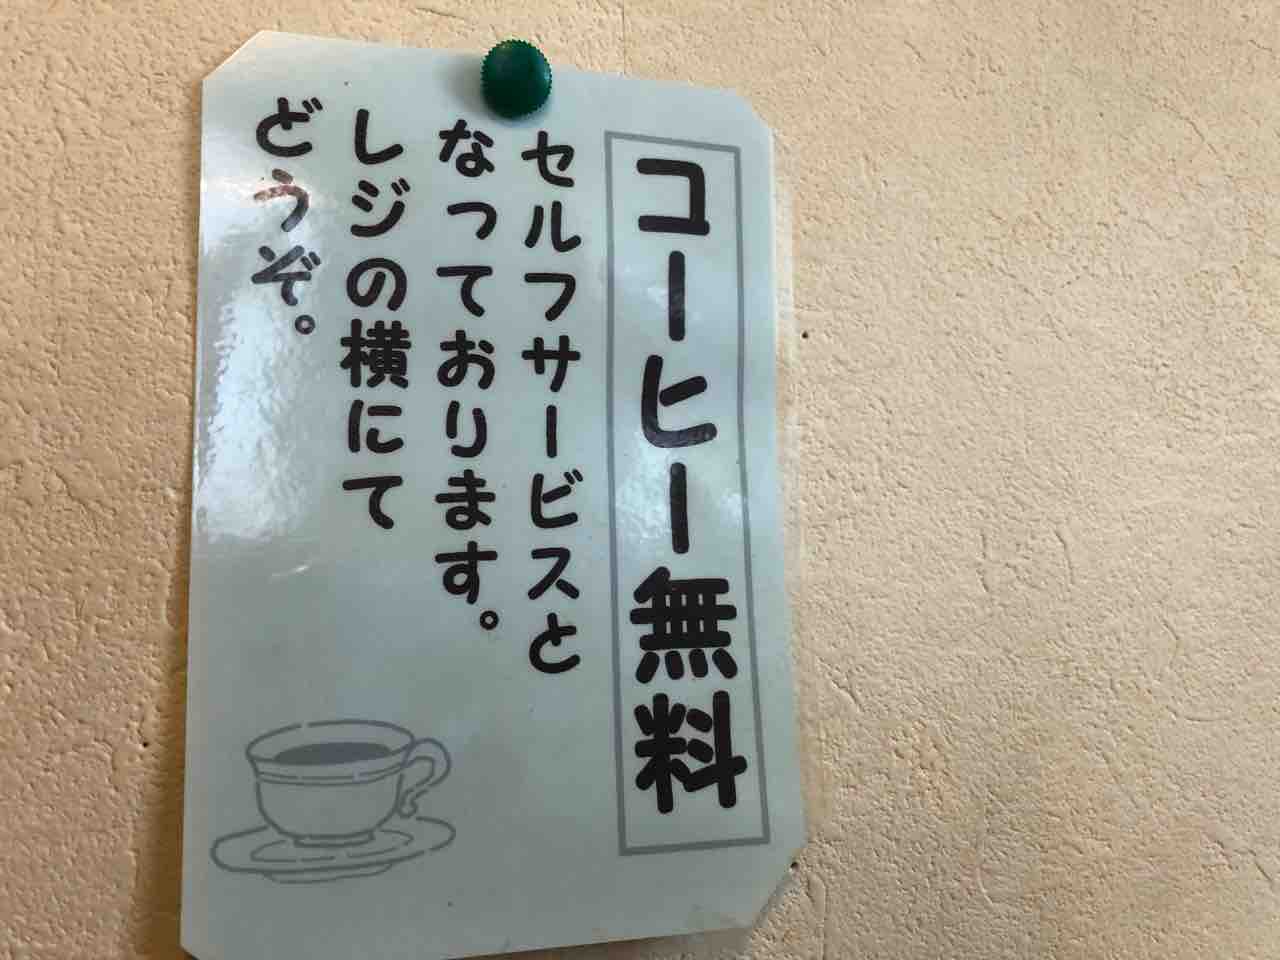 コーヒー無料
セルフサービスと
なっております。
レジの横にて
どうぞ。